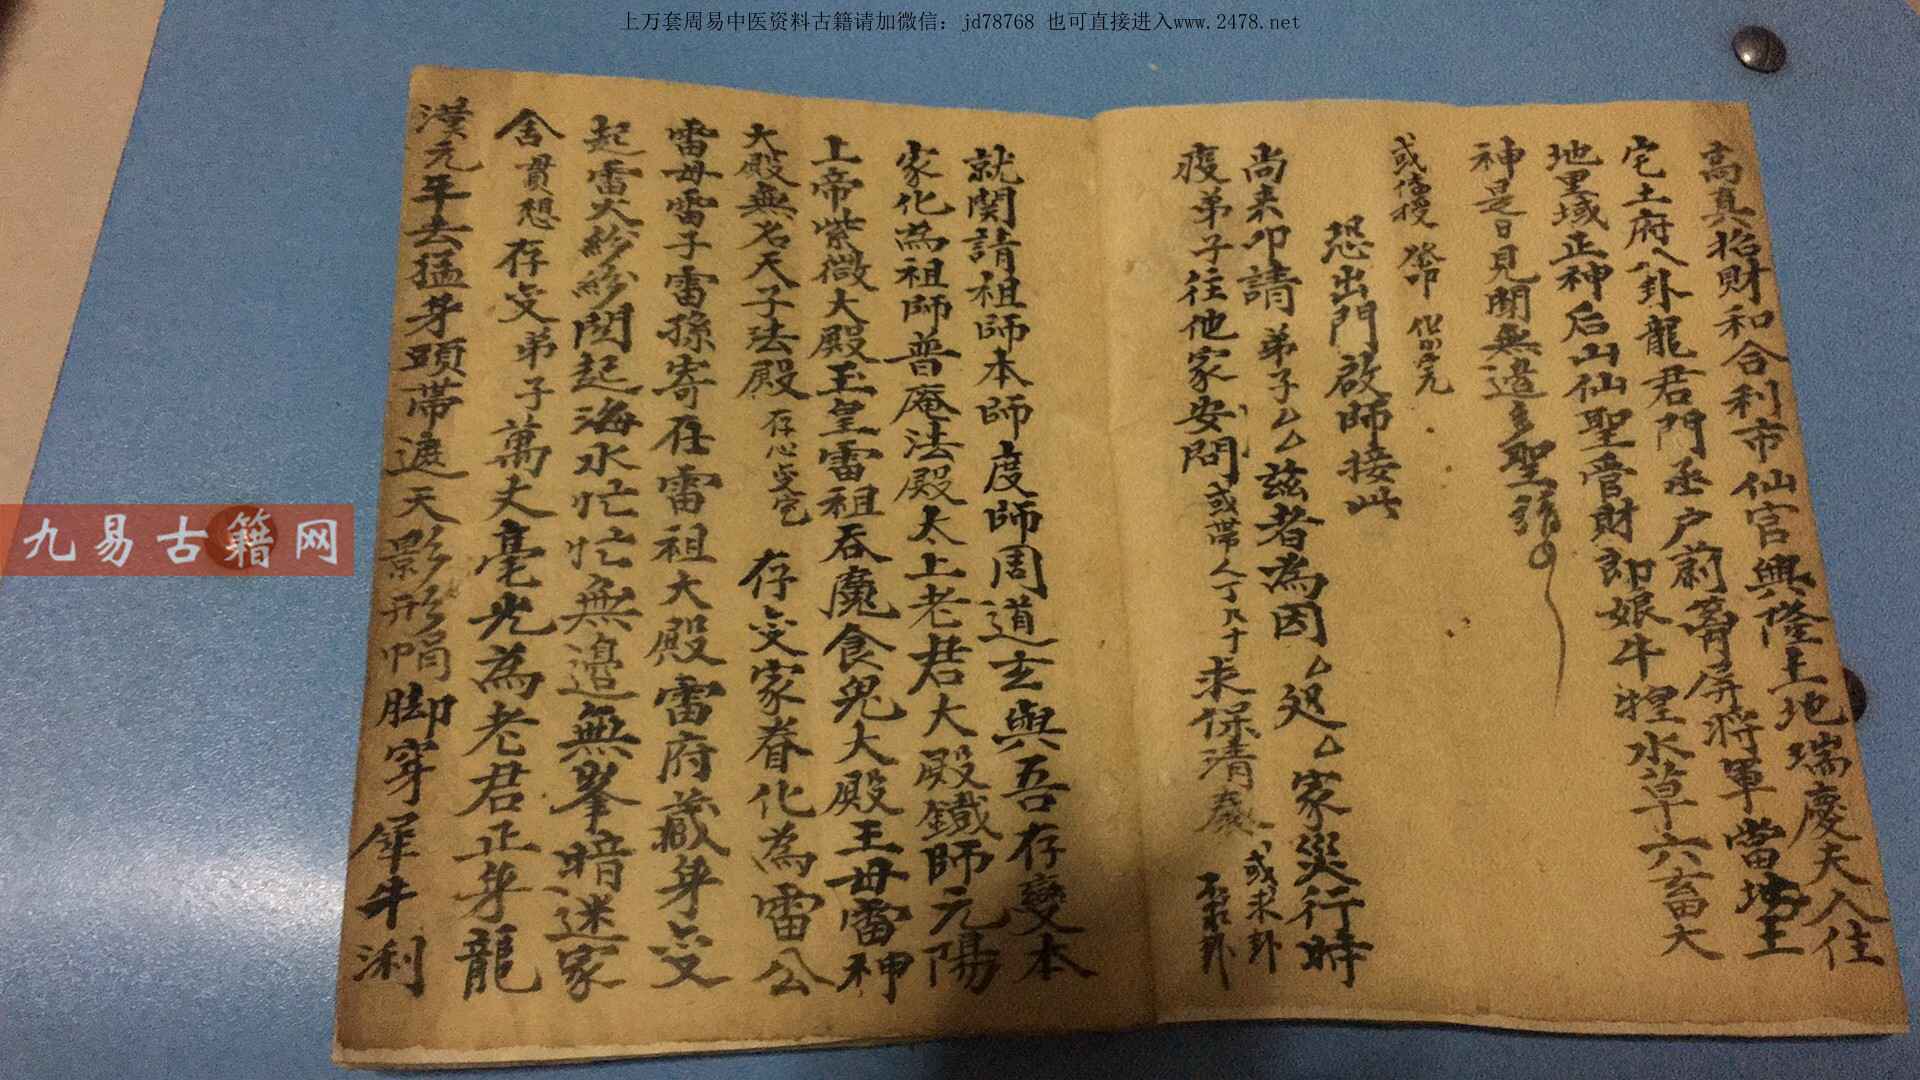 上万套周易中医资料古籍请加微信：jd78768 也可直接进入www.2478.net
高真招財和合利市仙官興隆土地瑞慶夫人住
宅土府八卦龍君門丞户蔚寄屏將軍當坊土
地里域正神后山仙聖管財郎娘牛牲水草六畜大
神是日見聞無邉聖
或傳授 發叩
恐出門啟師接此
尚来叩請 弟子厶厶兹者為因厶処厶家災行時
疫弟子往他家安問 或帶人丁 求保清 或求卦
就関請祖師本師度師周道玄與吾存變本
家化為祖師普庵法殿太上老君大殿鐵師元陽
上帝紫微大殿玉皇雷祖吞魔食鬼大殿王母雷神
大殿無名天子法殿 存心変完 存変家眷化為雷公
雷母雷子雷孫寄在雷祖大殿雷府藏身変
起雷火紛紛閃起海水忙忙無邉無峯暗迷家
舍 貫想 存変弟子萬丈毫光為老君正身龍
漢元年去猛身頭帶遮天影形帽脚穿犀牛
九易古籍网